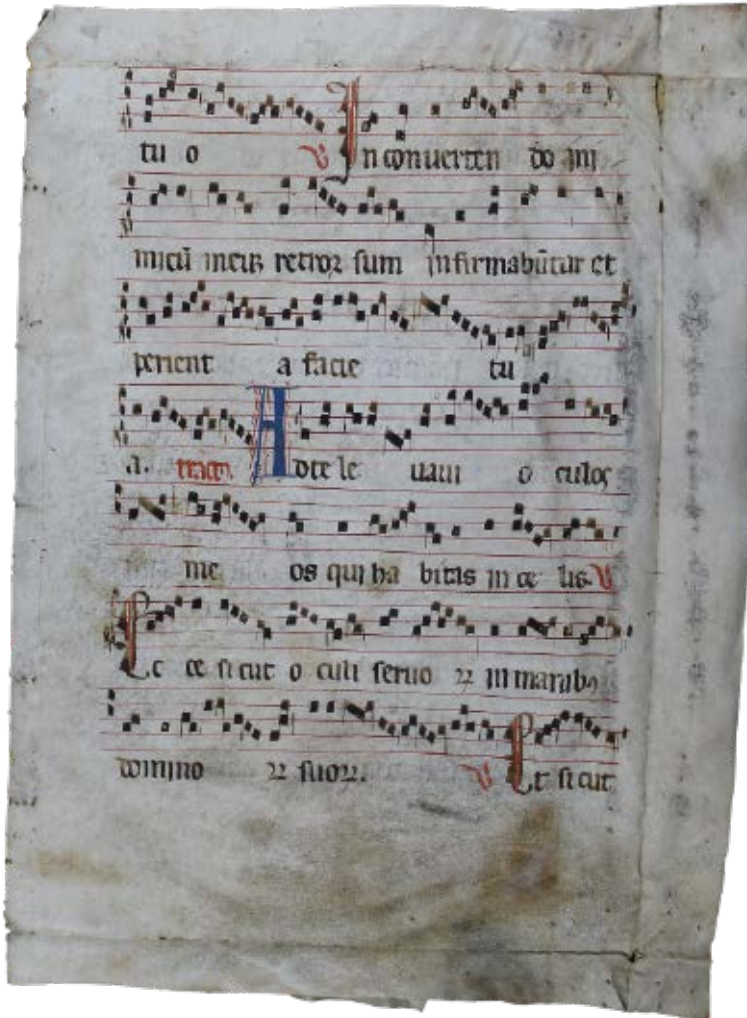 tu o ℣ In conuerten do ini
micū meūꝫ retrorſum infirmabūtur et
perient a facie tu
a. tract. Adte le uaui o culos
me os qui ha bitas in ce lis. ℣
Ec ce ſicut o culi ſeruo ꝝ in manibꝰ
domino ꝝ ſuoꝝ. ℣ Et ſicut